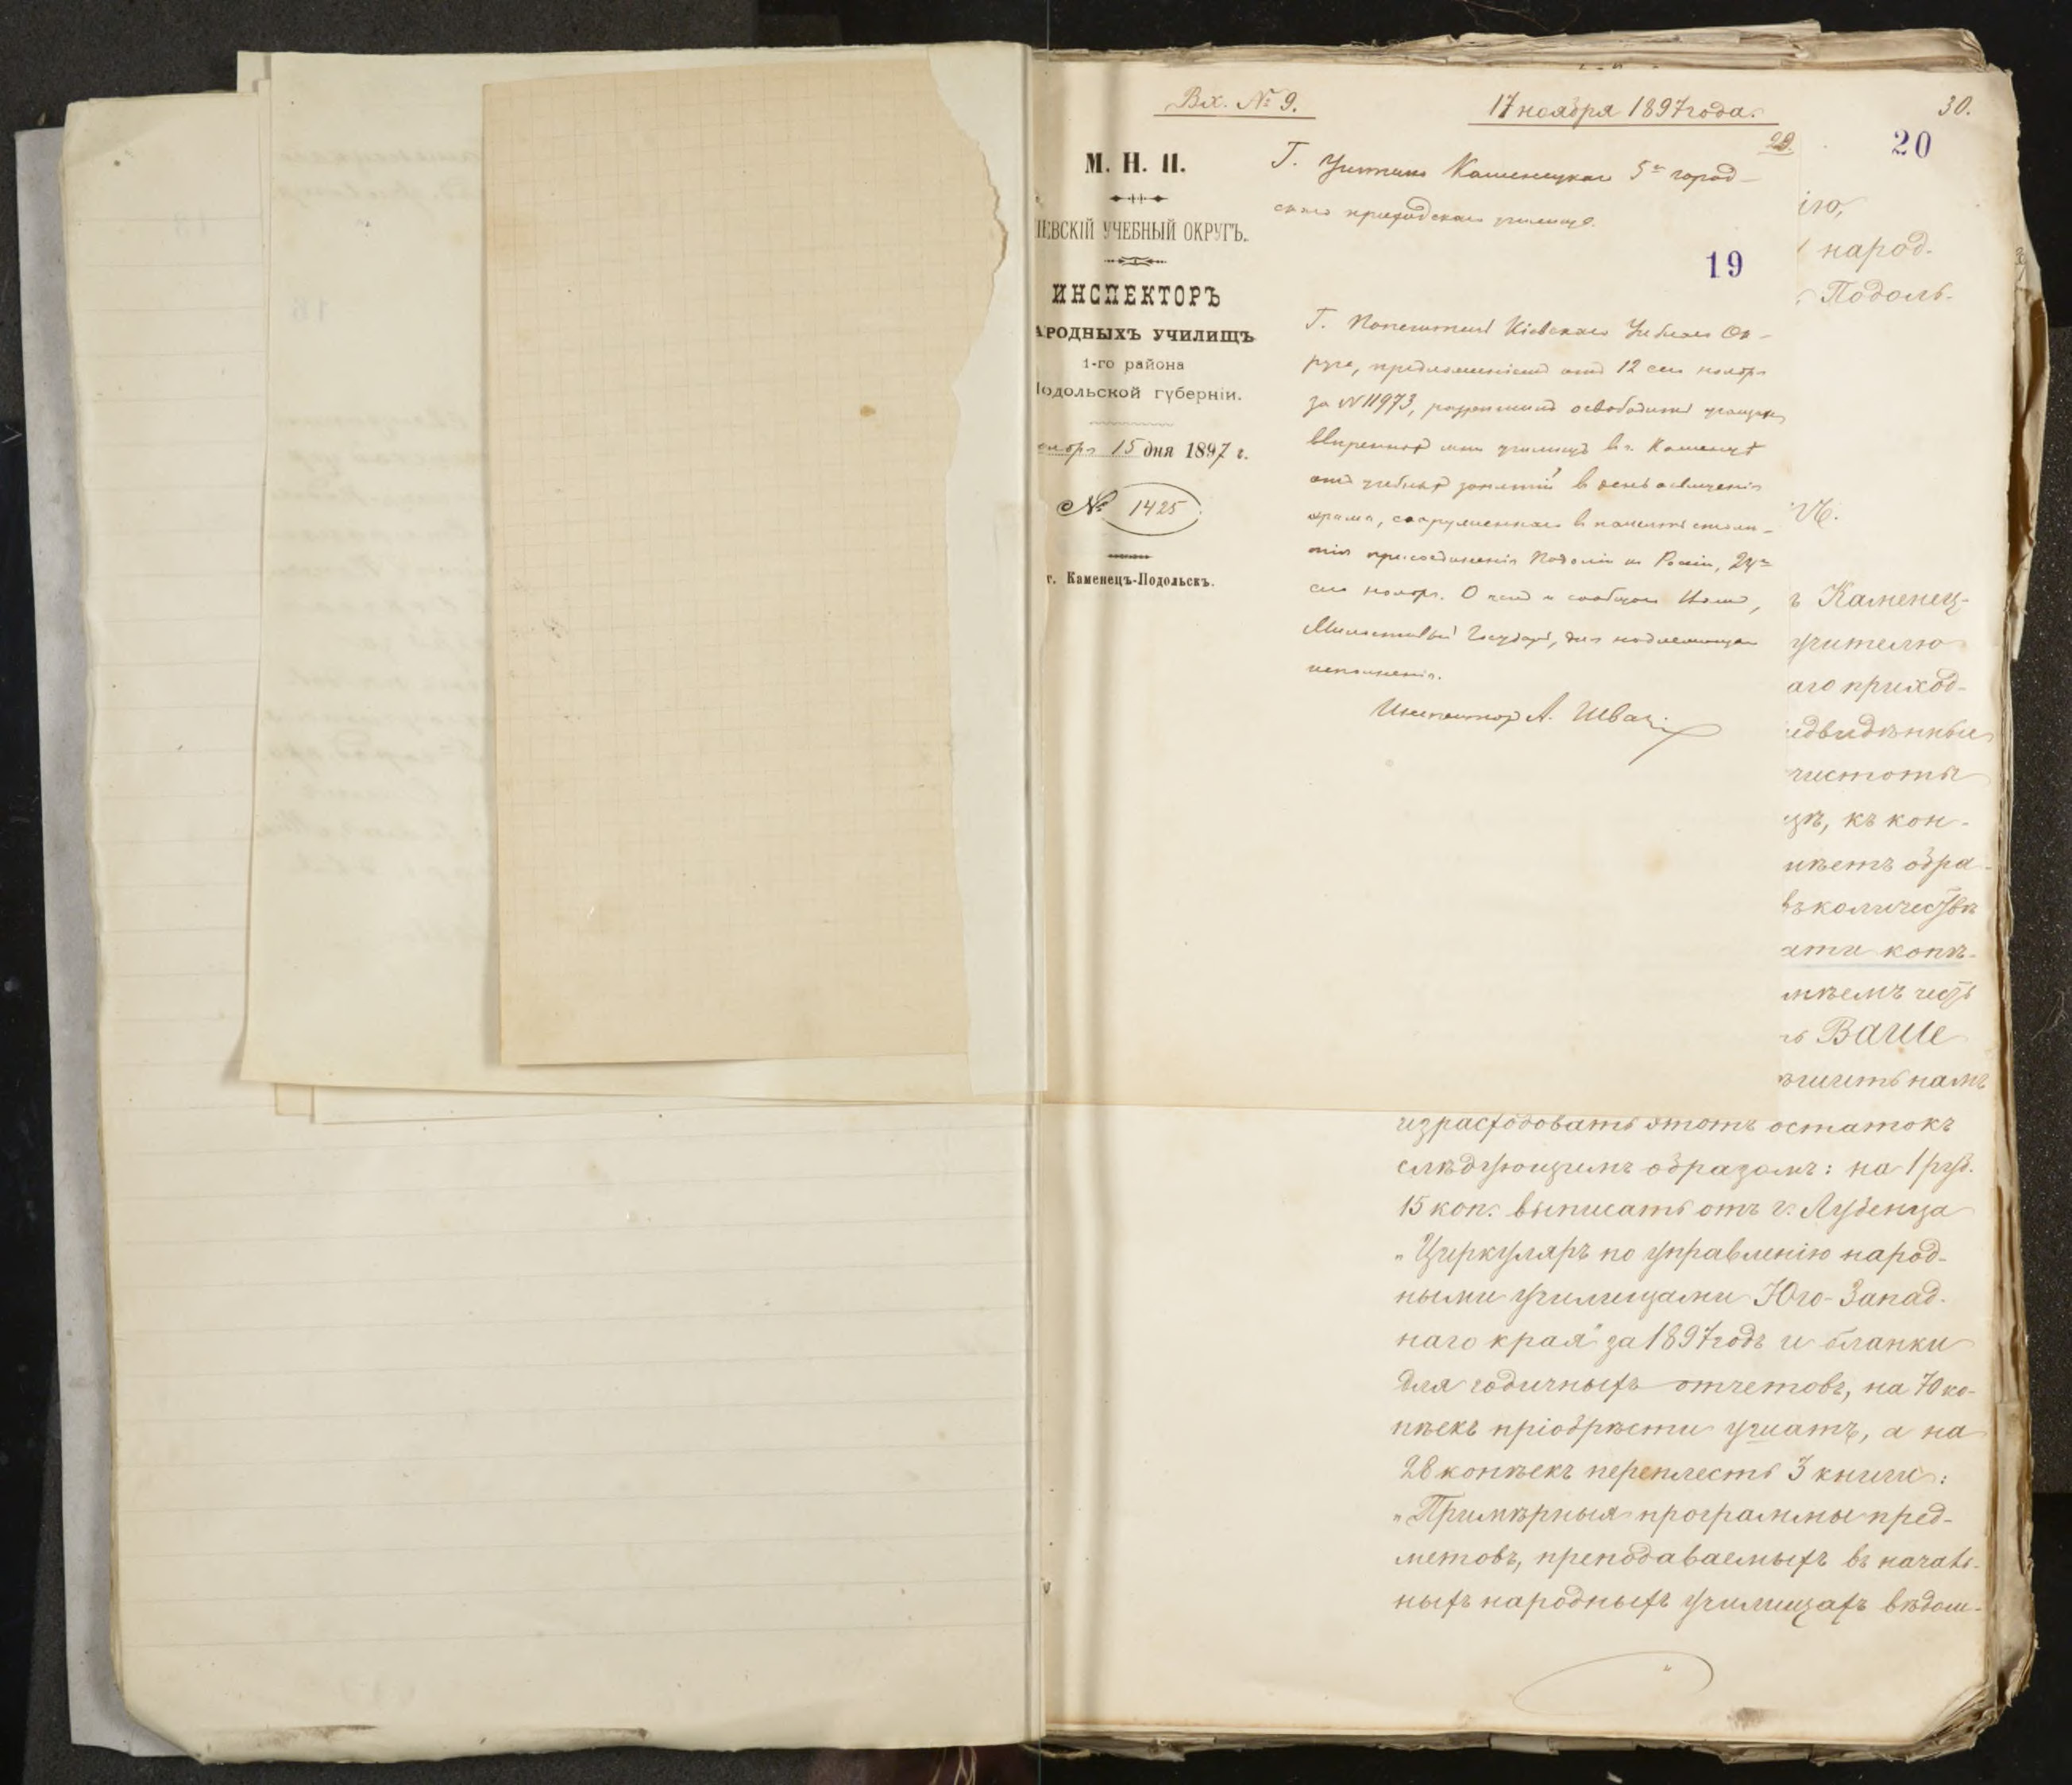 Вх. № 9.
17 ноября 1897 года.
30.
29.
20
М. Н. П.
ІЕВСКІЙ УЧЕБНЫЙ ОКРУГЪ.
ИНСПЕКТОРЪ
АРОДНЫХЪ УЧИЛИЩЪ
1-го района
Подольской губерніи.
ноября 15 дня 1897 г.
№ 1425
г. Каменецъ-Подольскъ.
Г. Учителю Каменецкаго 5го город-
скаго приходскаго училища.
19
Г. Попечитель Кіевскаго Учебнаго Ок-
руга, предложеніемъ отъ 12 сего ноября
за №11973, разрешилъ освободить учащихся
ввѣренныхъ мнѣ училищъ въ г. Каменцѣ
отъ учебныхъ занятій въ день освященія
храма, сооруженнаго въ память столѣ-
тія присоединенія Подоліи къ Россіи, 24го
сего ноября. О чемъ и сообщаю Вамъ,
Милостивый Государь, для надлежащаго
исполненія.
Инспекторъ А.
ію,
народ-
Подоль-
ъ Каменец-
учителю
аго приход-
едвидѣнные
чистоты
цѣ, къ кон-
икетъ обра-
въ количествѣ
ати копѣ-
мѣемъ честь
ь Ваше
ѣшить намъ
израсходовать этотъ остатокъ
слѣдующимъ образомъ: на 1 руб.
15 коп. выписать отъ г. Лубенца
„Циркуляръ по управленію народ-
ными училищами Юго-Запад-
наго края" за 1897 годъ и бланки
для годичныхъ отчетовъ, на 70 ко-
пѣекъ пріобрѣсти ушатъ, а на
28 копѣекъ переплесть 3 книги:
„Примѣрныя программы пред-
метовъ, преподаваемыхъ въ началь-
ныхъ народныхъ училищахъ вѣдом-